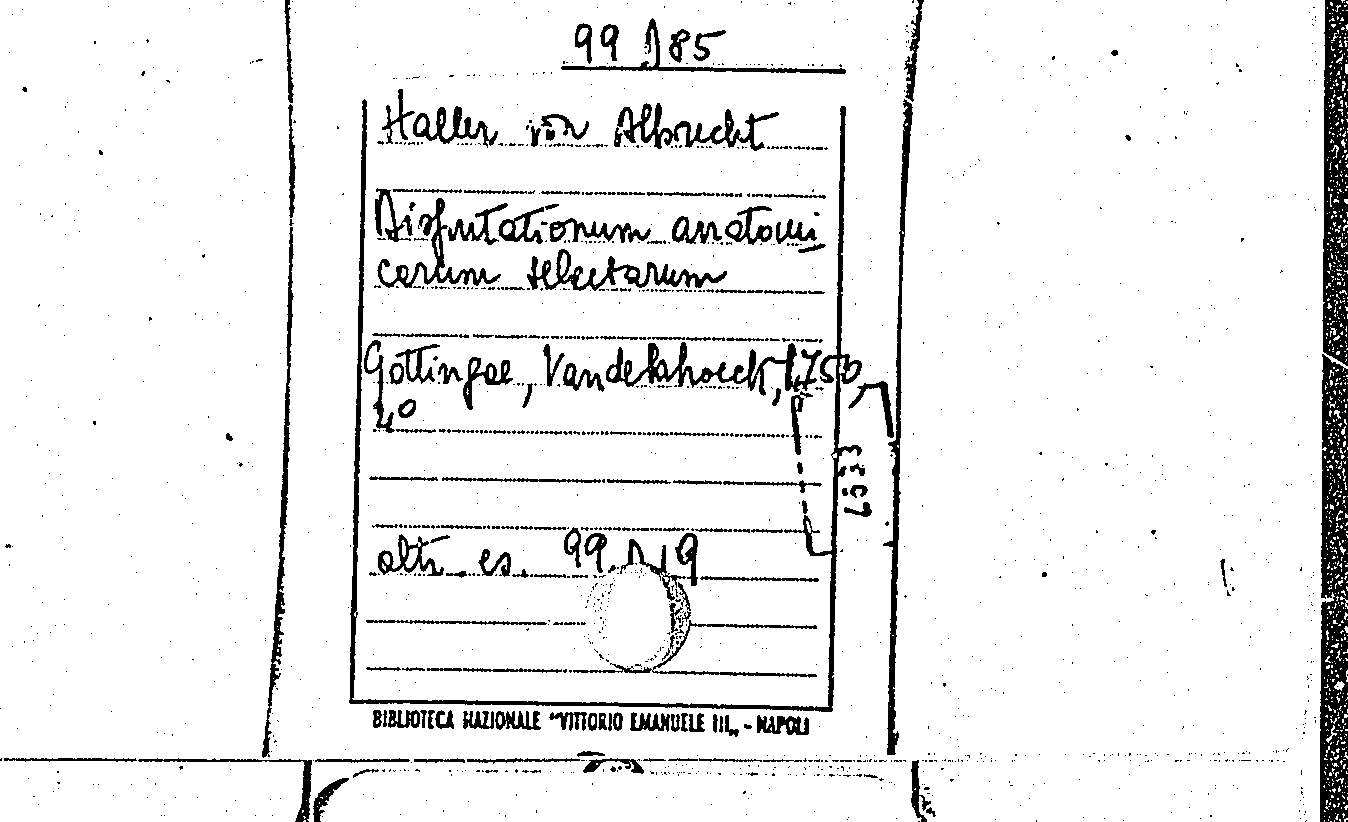 99 D 85
Haller von Albrecht
Disputationum anatomi
carum selectarum
Gottingae, Vandekhoeck, 1750,
4º
6533
altr. es. 99. D 19
BIBLIOTECA NAZIONALE "VITTORIO EMANUELE III„ - NAPOLI